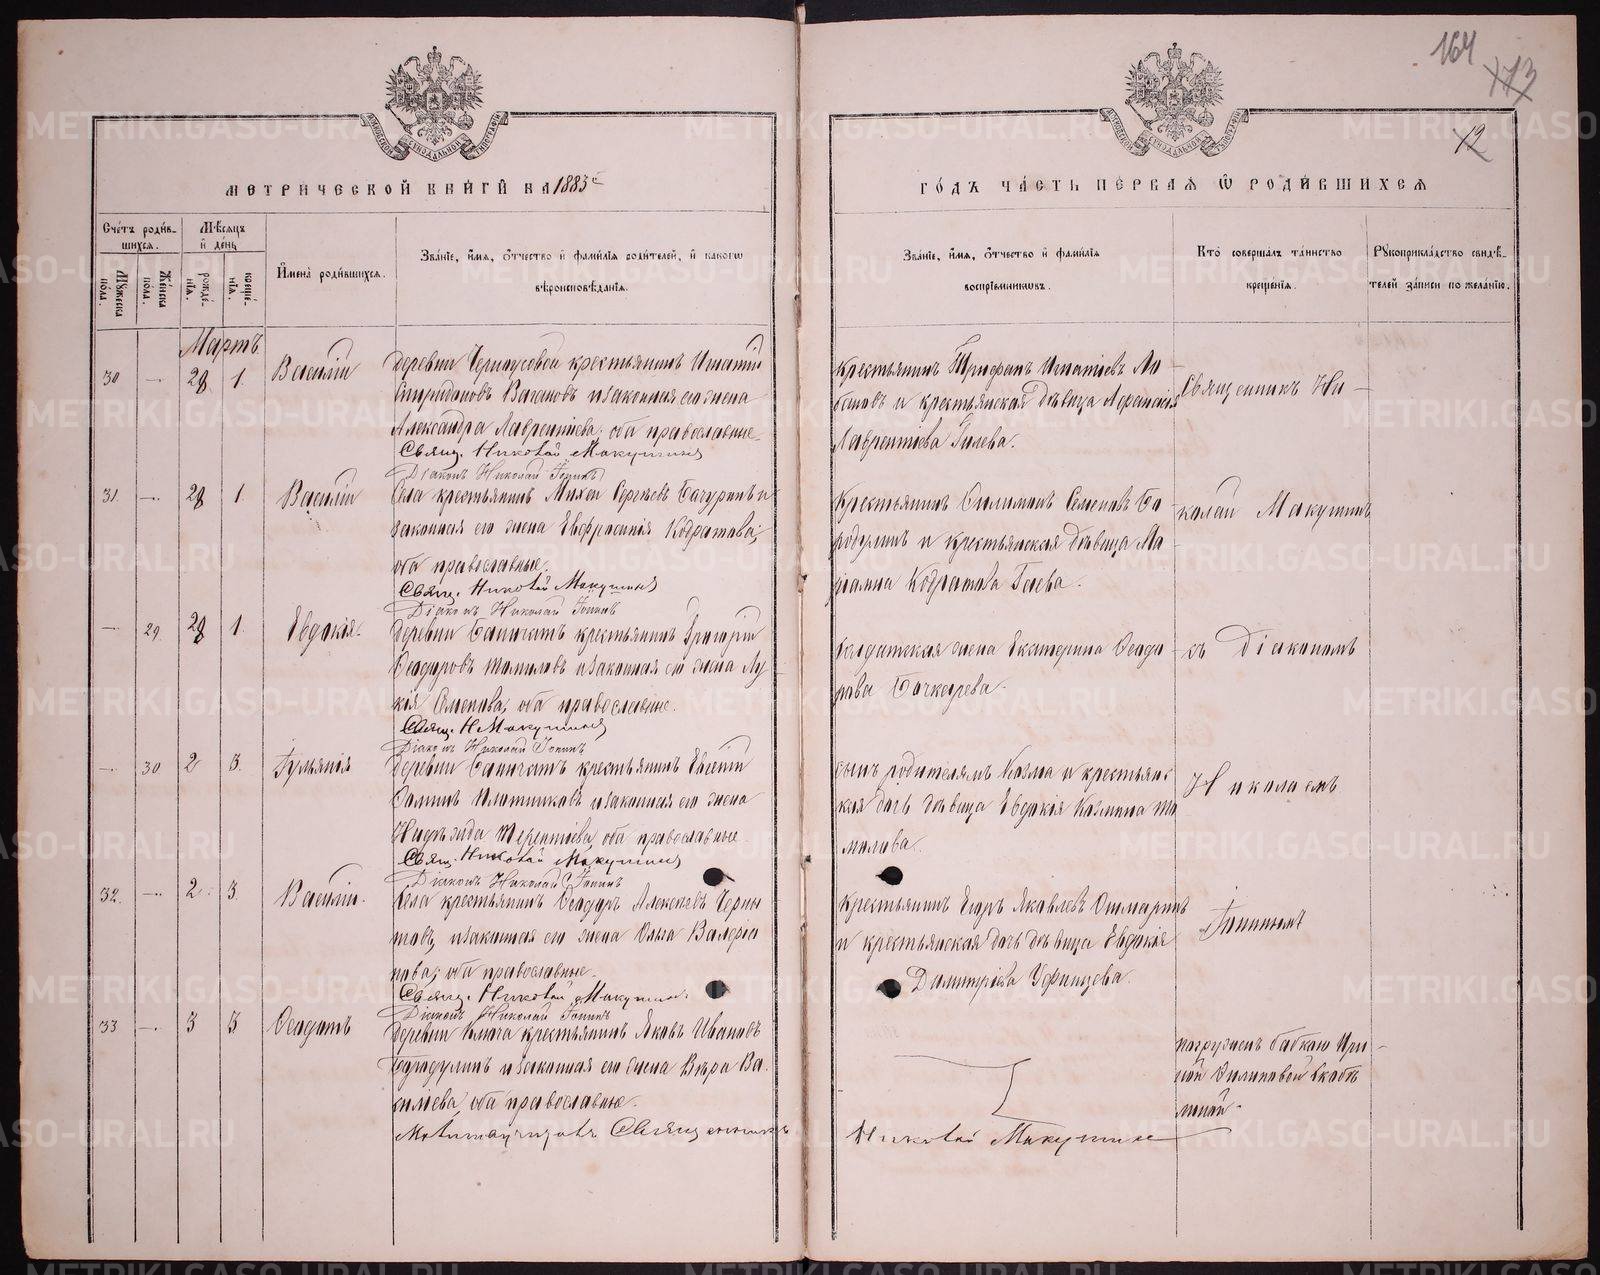 164
173
12
МЕТРИЧЕСКОЙ КНИГИ НА 1883 й
ГОДЪ ЧАСТЬ ПЕРВАЯ Ѿ РОДИВШИХСЯ
Счетъ родив-
шихся.
Мѣсяцъ
и день
Мужеска
пола.
Женска
пола.
рожде-
нія.
креще-
нія.
Имена родившихся.
Званіе, имя, отчество и фамилія родителей, и какого
вѣроисповѣданія.
Званіе, имя, отчество и фамилія
воспріемниковъ.
Кто совершалъ таинство
крещенія.
Рукоприкладство свидѣ-
телей записи по желанію.
Мартъ
30 28 1. Василій
деревни Черноусовой крестьянинъ Игнатій
Спиридоновъ Вагановъ и законная его жена
Александра Лаврентіева, оба православные
Свящ. Николай Макушинъ
Діаконъ Николай Попинъ
Крестьянинъ Трифонъ Игнатіевъ Ло
бановъ и крестьянская дѣвица Афанасія
Лаврентіева Гилева.
Священникъ Ни-
31. 28 1. Василій
Села крестьянинъ Михей Сергѣевъ Бачуринъ и
законная его жена Евфросинія Кодратова,
оба православные.
Свящ. Николай Макушинъ
Діаконъ Николай Попинъ
Крестьянинъ Семеновъ Бо
родулинъ и крестьянская дѣвица Ма
Кодратова Гилева.
колай Макушинъ
29. 28 1. Евдокія.
деревни крестьянинъ Григорій
Ѳеодоровъ Томиловъ и законная его жена Лу
кія Семенова, оба православные.
Свящ. Н Макушинъ
Діаконъ Николай Попинъ
солдатская жена Екатерина Ѳеодо
рова
съ Діакономъ
30 2 3.
деревни крестьянинъ Евгеній
Плотниковъ и законная его жена
Надежда Терентіева, оба православные
Свящ. Николай Макушинъ
Діаконъ Николай Попинъ
сынъ родителямъ Козма и крестьянс
кая дочь дѣвица Евдокія Козмина То
милова.
Николаемъ
32. 2 3. Василій.
Села крестьянинъ Ѳеодоръ Алексѣевъ
и законная его жена Ольга Валеріа
нова, оба православные.
Свящ. Николай Макушинъ
Діаконъ Николай Попинъ
Крестьянинъ Егоръ Яковлевъ
и крестьянская дочь дѣвица Евдокія
Димитріева Уфинцева.
Попинымъ
33 3 3 Ѳеодотъ
деревни крестьянинъ Яковъ Ивановъ
Бородулинъ и законная его жена Вѣра Ва
силіева, оба православные.
погруженъ бабкою Ири-
ной Филиповой
Священникъ
Николай Макушинъ
METRIKI.GASO-URAL.RU